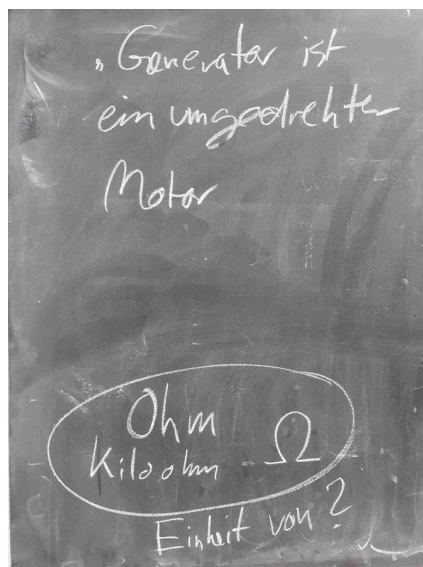 „Generator ist
ein umgedrehter
Motor
Ohm
Kiloohm Ω
Einheit von?